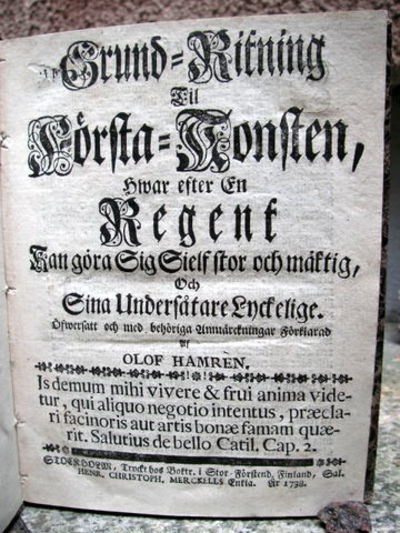 Grund-Ritning
Til
Första-Konsten,
Hwar efter En
Regent
Kan göra Sig Sielf stor och mäktig,
Och
Sina Undersåtare Lyckelige.
Öfwersatt och med behöriga Anmärckningar Förklarad
af
OLOF HAMRÈN.
Is demum mihi vivere & frui anima vide-
tur, qui aliquo negotio intentus, præcla-
ri facinoris aut artis bonæ famam quæ-
rit. Salutius de bello Catil. Cap. 2.
STOCKHOLM, Tryckt hos Boktr. i Stor-Förstend. Finland, Sal.
HENR. CHRISTOPH. MERCKELLS Enkia. År 1738.